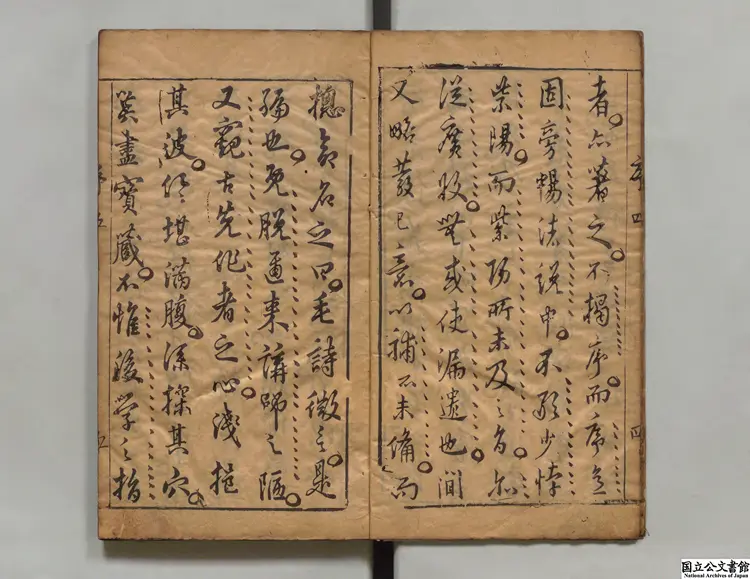 序四
四
者亦著之不揭序而序意
固旁暢法說中不敢少悖
紫陽而紫陽所未及之旨亦
從廣收無或使漏遺也間
又略發己意以補所未備而
摠命名之曰毛詩微之是
編也免脫邇來講師之陋
又窺古先作者之心淺挹
其波堪滿腹深探其穴
盡寶藏不惟後學之指
序五
五
国立公文書館
National Archives of Japan